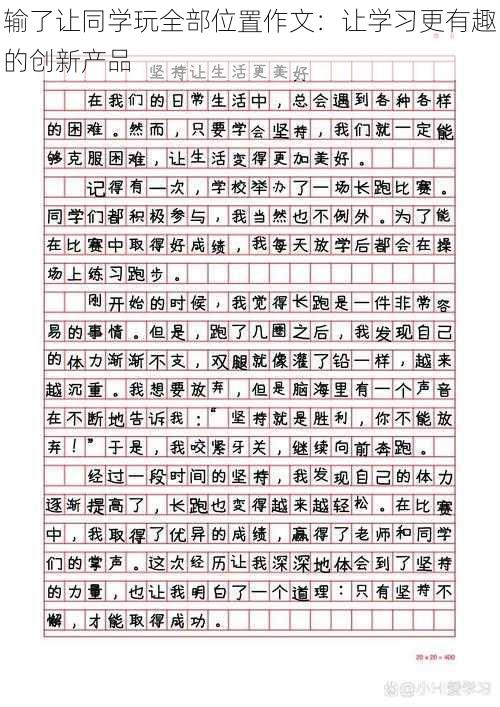 输了让同学玩全部位置作文：让学习更有趣
的创新产品
坚持让生活更美好
在我们的日常生活中，总会遇到各种各样
的困难。然而，只要学会坚持，我们就一定能
够克服困难，让生活变得更加美好。
记得有一次，学校举办了一场长跑比赛。
同学们都积极参与，我当然也不例外。为了能
在比赛中取得好成绩，我每天放学后都会在操
场上练习跑步。
刚开始的时候，我觉得长跑是一件非常容
易的事情。但是，跑了几圈之后，我发现自己
的体力渐渐不支，双腿就像灌了铅一样，越来
越沉重。我想要放弃，但是脑海里有一个声音
在不断地告诉我：“坚持就是胜利，你不能放
弃！”于是，我咬紧牙关，继续向前奔跑。
经过一段时间的坚持，我发现自己的体力
逐渐提高了，长跑也变得越来越轻松。在比赛
中，我取得了优异的成绩，赢得了老师和同学
们的掌声。这次经历让我深深地体会到了坚持
的力量，也让我明白了一个道理：只有坚持不
懈，才能取得成功。
20 x 20 = 400
@小H爱学习